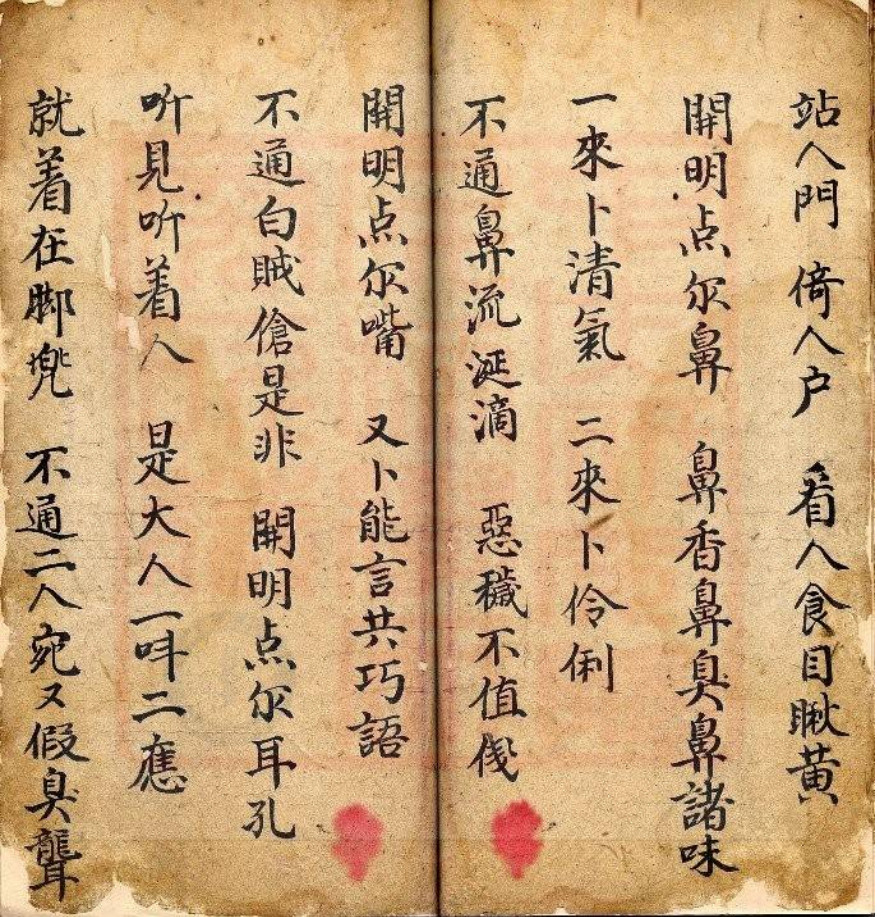 站人門 倚人户 看人食目瞅黄
開明点尔鼻 鼻香鼻臭鼻諸味
一來卜清氣 二來卜伶俐
不通鼻流涎滴 惡穢不值伐
開明点尔嘴 又卜能言共巧語
不通白賊傖是非 開明点尔耳孔
听見听着人 是大人一呌二應
就着在脚兠 不通二人宛又假臭聾